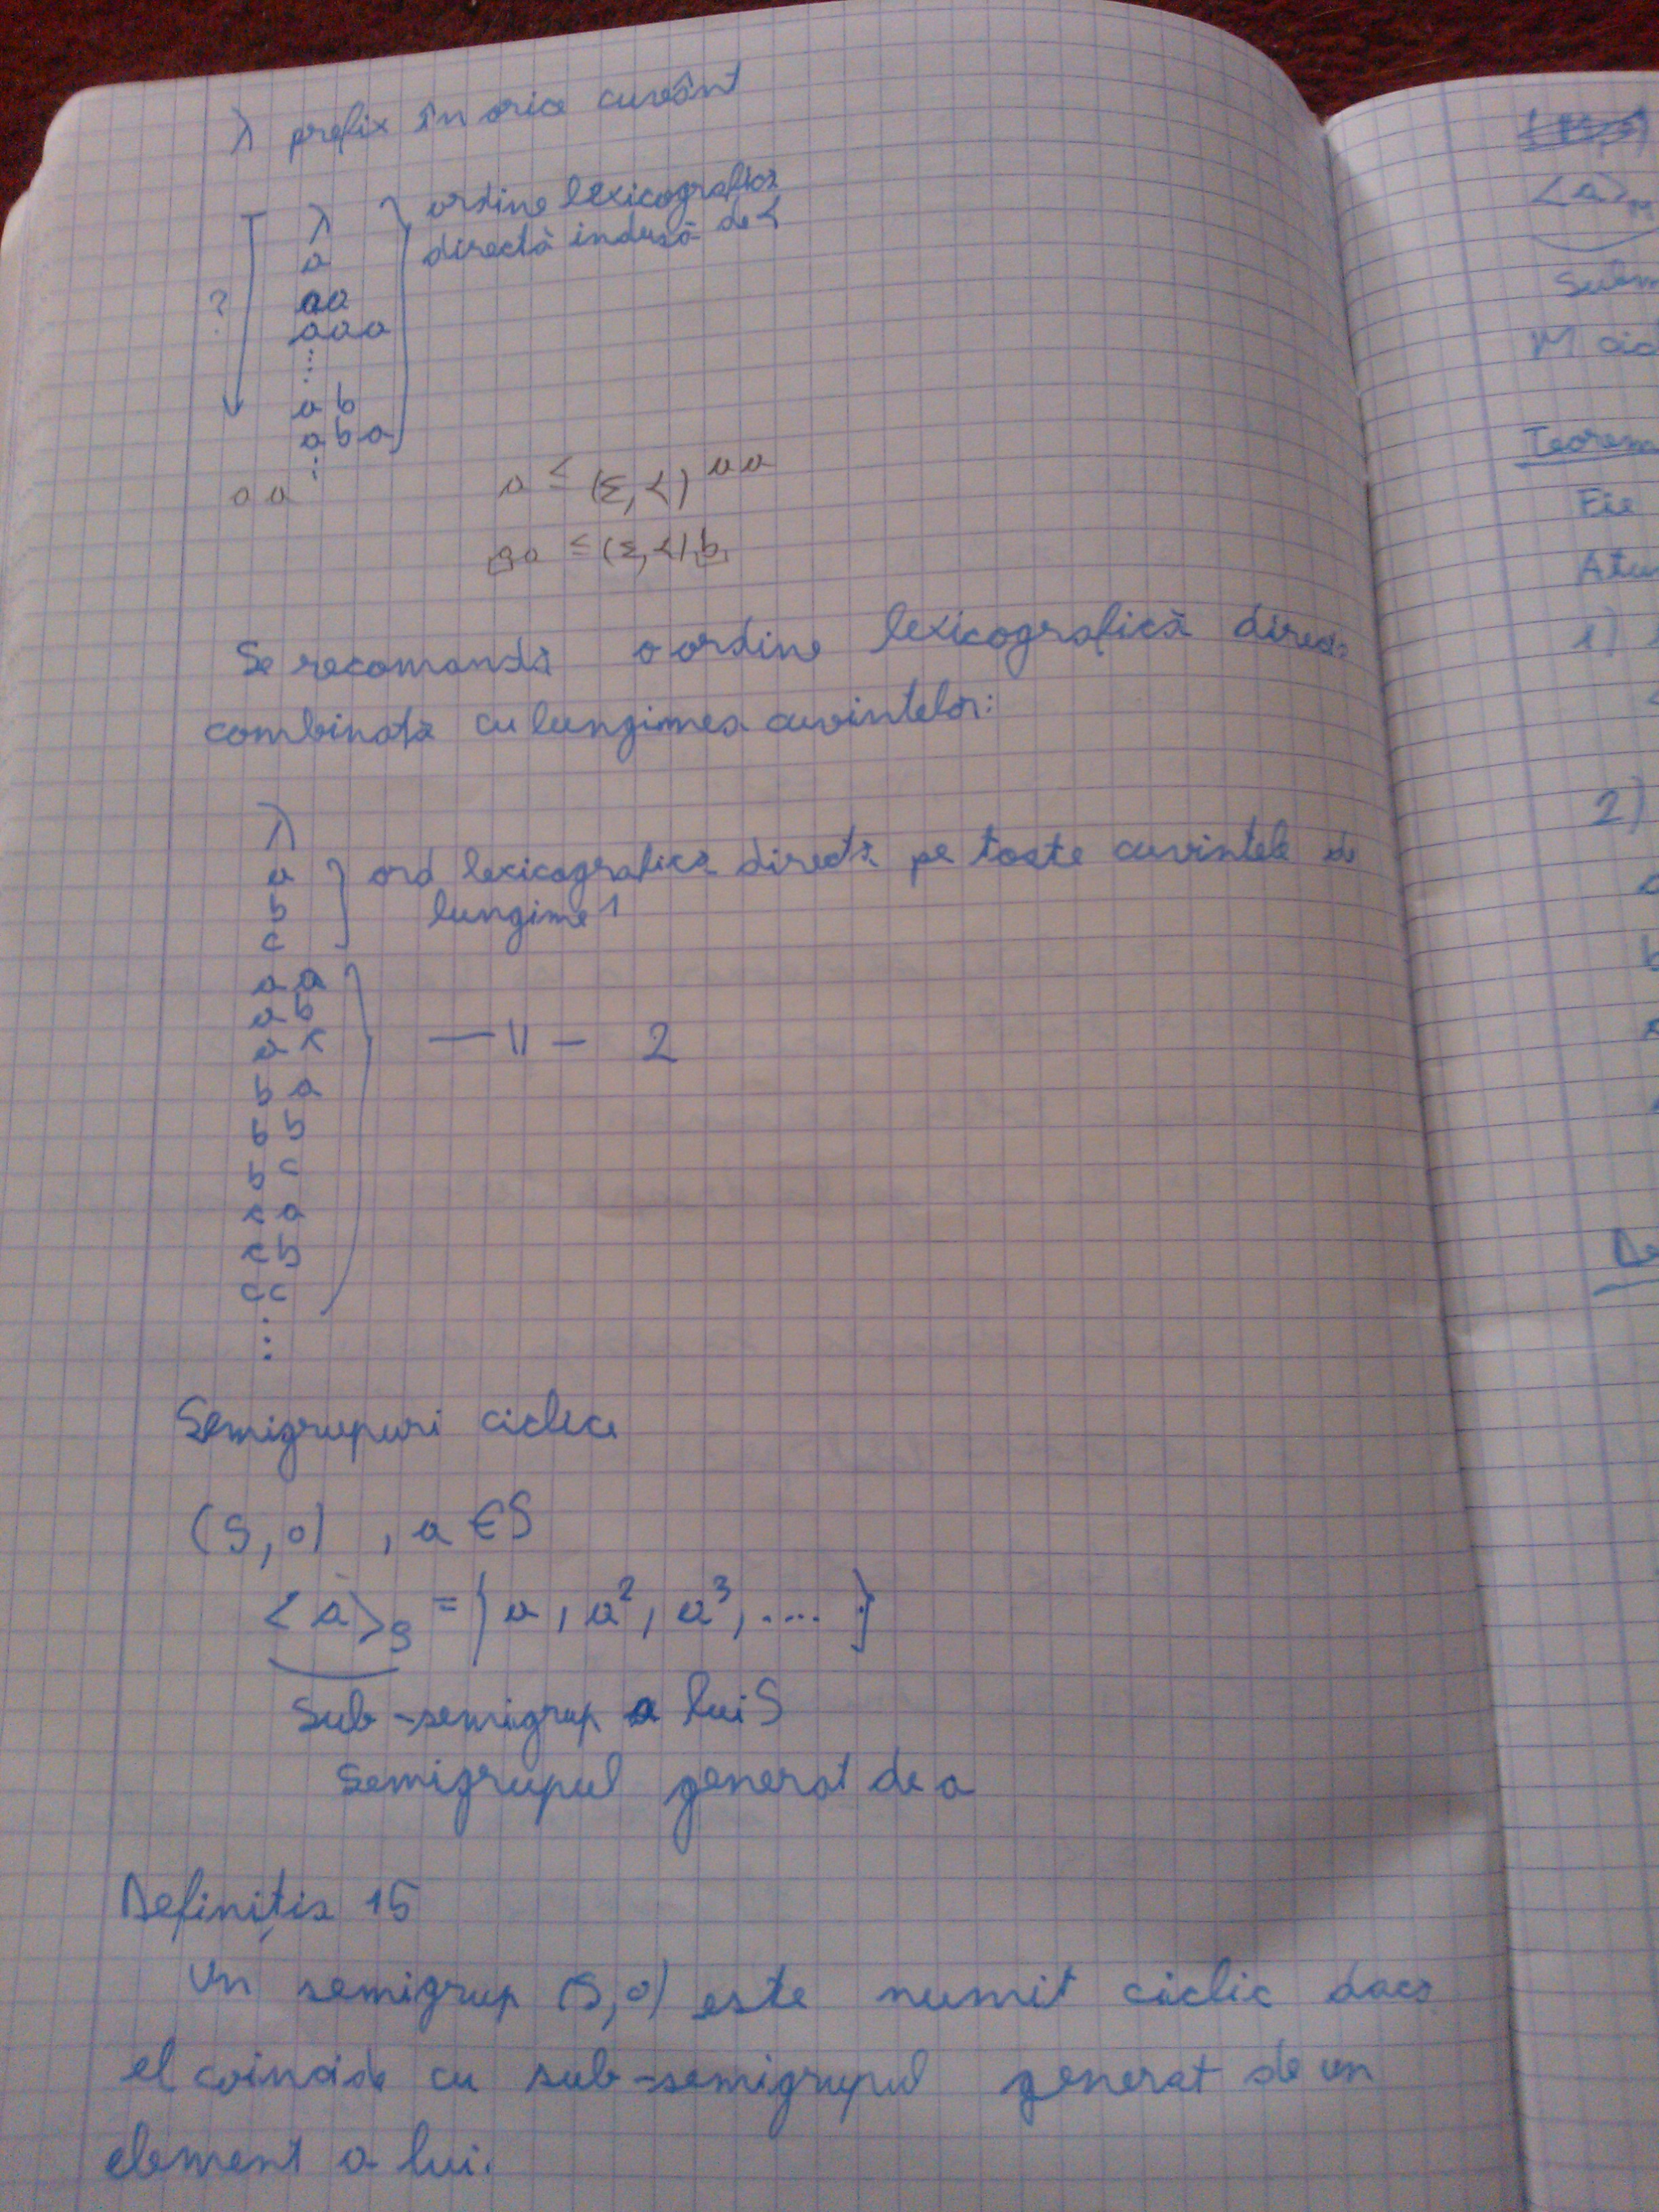 λ prefix în orice cuvânt
λ
ordine lexicografică
a
directă indusă de <
?
aa
aaa
⋮
ab
aba
⋮
aa
a ≤ (Σ,<) aa
aa ≤ (Σ,<) b
Se recomandă o ordine lexicografică directă
combinată cu lungimea cuvintelor:
λ
a
ord lexicografică directă pe toate cuvintele de
b
lungime 1
c
aa
ab
ac
—"— 2
ba
bb
bc
ca
cb
cc
⋮
Semigrupuri ciclice
(S,∘) , a ∈ S
<a>_S = {a, a², a³, .... }
Sub-semigrup a lui S
Semigrupul generat de a
Definiția 15
Un semigrup (S,∘) este numit ciclic dacă
el coincide cu sub-semigrupul generat de un
element a lui.
<a>
Teorema
Fie
1)
2)